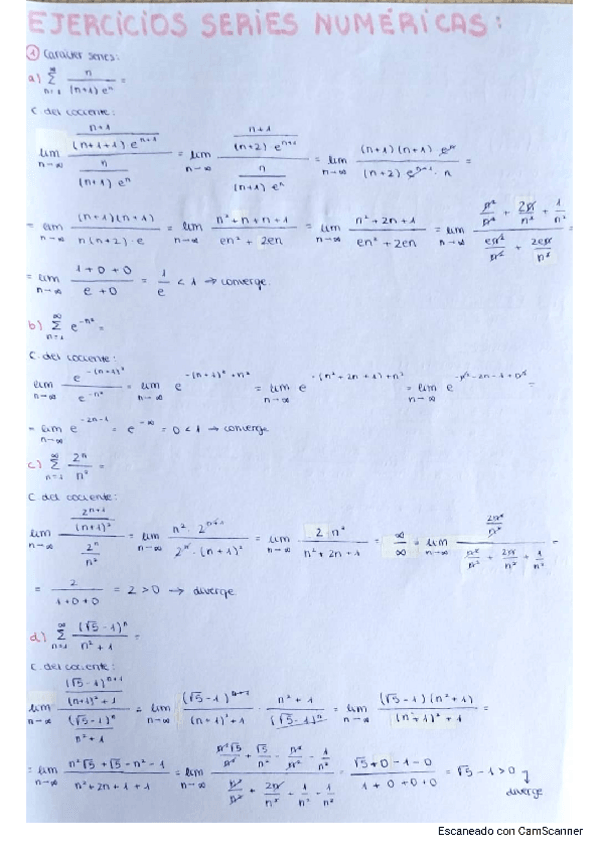 EJERCICIOS SERIES NUMÉRICAS:
① Caracter series:
a) ∞ Σ n=1 n / (n+1) eⁿ =
C. del cociente:
lim n→∞ ((n+1) / ((n+1+1) eⁿ⁺¹)) / (n / ((n+1) eⁿ)) = lim n→∞ ((n+1) / ((n+2) eⁿ⁺¹)) / (n / ((n+1) eⁿ)) = lim n→∞ ((n+1)(n+1) eⁿ) / ((n+2) eⁿ⁺¹ · n) =
= lim n→∞ ((n+1)(n+1)) / (n(n+2) · e) = lim n→∞ (n² + n + n + 1) / (en² + 2en) = lim n→∞ (n² + 2n + 1) / (en² + 2en) = lim n→∞ (n²/n² + 2n/n² + 1/n²) / (en²/n² + 2en/n²) =
= lim n→∞ (1 + 0 + 0) / (e + 0) = 1/e < 1 → converge.
b) ∞ Σ n=1 e^(-n²) =
C. del cociente:
lim n→∞ e^(-(n+1)²) / e^(-n²) = lim n→∞ e^(-(n+1)² + n²) = lim n→∞ e^(-(n² + 2n + 1) + n²) = lim n→∞ e^(-n² - 2n - 1 + n²) =
= lim n→∞ e^(-2n-1) = e^(-∞) = 0 < 1 → converge
c) ∞ Σ n=1 2ⁿ / n² =
C del cociente:
lim n→∞ (2ⁿ⁺¹ / (n+1)²) / (2ⁿ / n²) = lim n→∞ (n² · 2ⁿ⁺¹) / (2ⁿ · (n+1)²) = lim n→∞ 2n² / (n² + 2n + 1) = ∞/∞ = lim n→∞ (2n²/n²) / (n²/n² + 2n/n² + 1/n²)
= 2 / (1+0+0) = 2 > 0 → diverge
d) ∞ Σ n=1 (√5 - 1)ⁿ / (n² + 1) =
C. del cociente:
lim n→∞ ((√5 - 1)ⁿ⁺¹ / ((n+1)² + 1)) / ((√5 - 1)ⁿ / (n² + 1)) = lim n→∞ (√5 - 1)ⁿ⁺¹ / ((n+1)² + 1) · (n² + 1) / (√5 - 1)ⁿ = lim n→∞ ((√5 - 1)(n² + 1)) / ((n+1)² + 1) =
= lim n→∞ (n²√5 + √5 - n² - 1) / (n² + 2n + 1 + 1) = lim n→∞ (n²√5/n² + √5/n² - n²/n² - 1/n²) / (n²/n² + 2n/n² + 1/n² + 1/n²) = (√5 + 0 - 1 - 0) / (1 + 0 + 0 + 0) = √5 - 1 > 0
↳ diverge
Escaneado con CamScanner